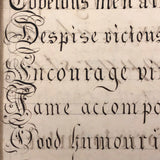 Covetous men at
Despise victous
Encourage vir
Fame accomp
Good humour